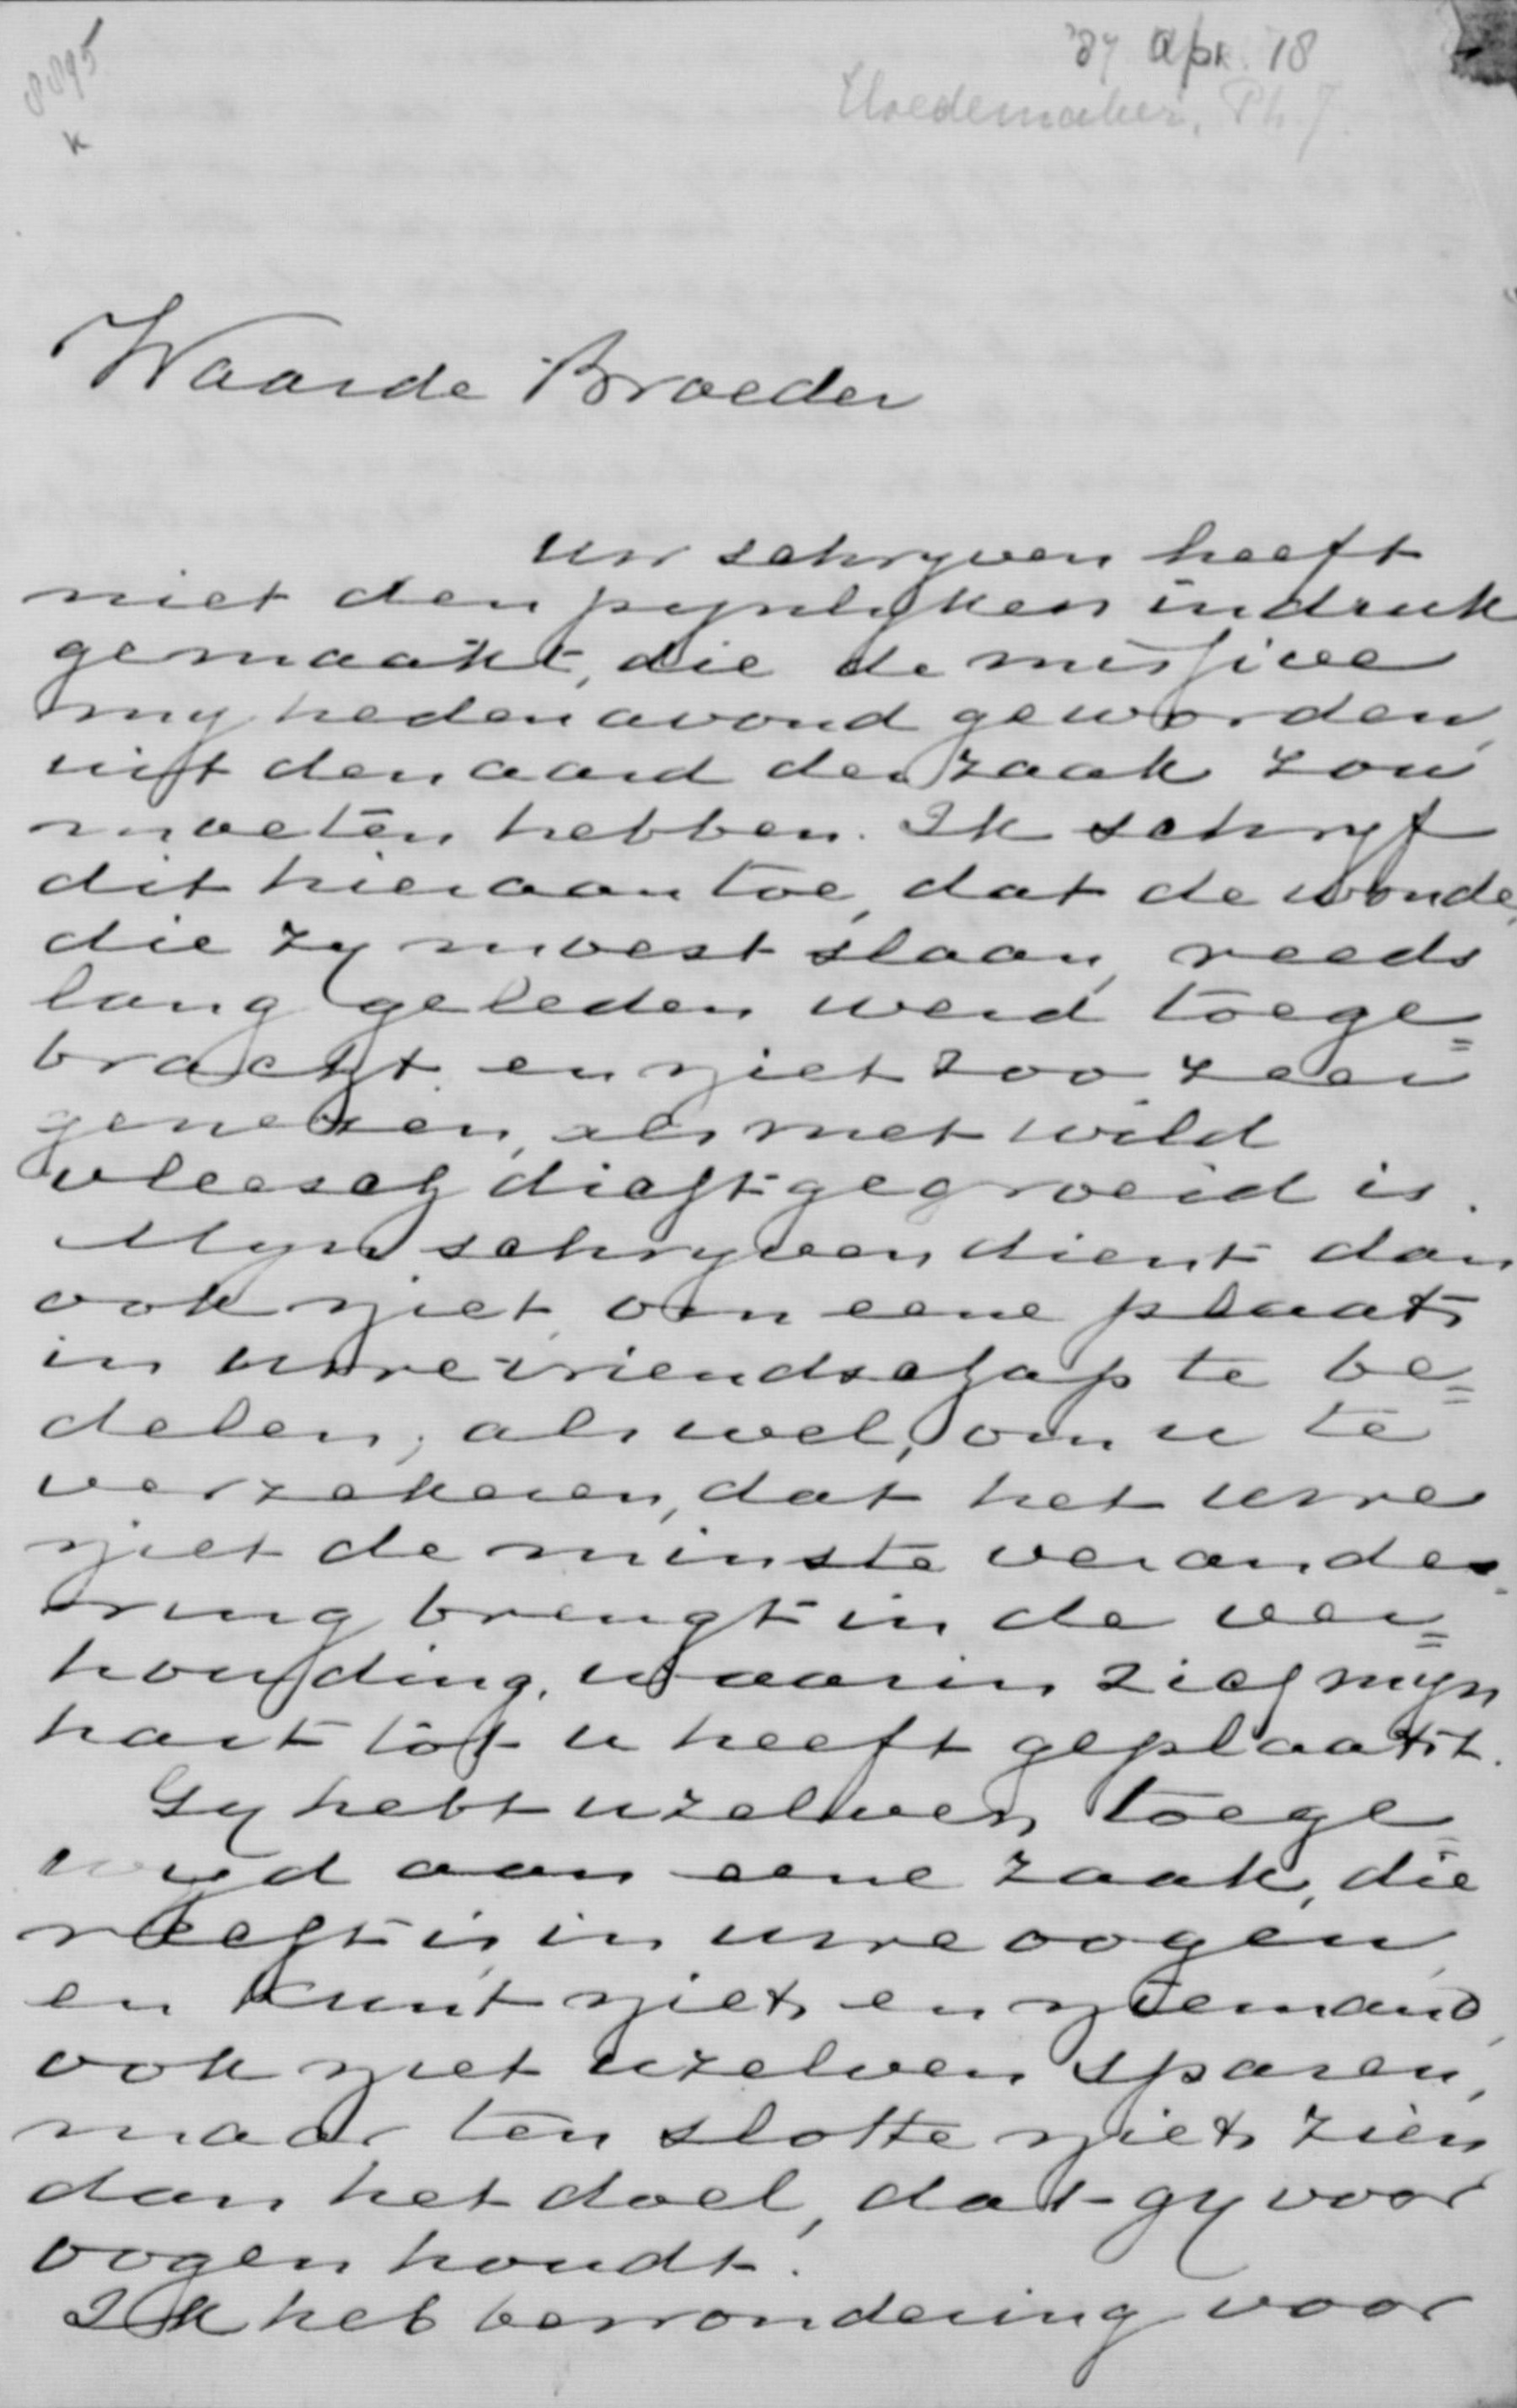 8895
K
'87 Apr. 18
Hoedemaker, Ph. J.
Waarde Broeder
Uw schryven heeft
niet den pynlyken indruk
gemaakt, die de missive
my hedenavond geworden,
uit den aard der zaak zou
moeten hebben. Ik schryf
dit hieraan toe, dat de wonde,
die zy moest slaan, reeds
lang geleden werd toege=
bracht en niet zoo zeer
genezen, als met wild
vleesch dichtgegroeid is.
Myn schryven dient dan
ook niet, om eene plaats
in uwe vriendschap te be=
delen, als wel, om u te
verzekeren, dat het uwe
niet de minste verande=
ring brengt in de ver=
houding, waarin zich myn
hart tot u heeft geplaatst.
Gy hebt uzelven toege=
wyd aan eene zaak, die
recht is in uwe oogen,
en kunt niets en niemand,
ook niet uzelven sparen,
maar ten slotte niets zien
dan het doel, dat gy voor
oogen houdt.
Ik heb bewondering voor